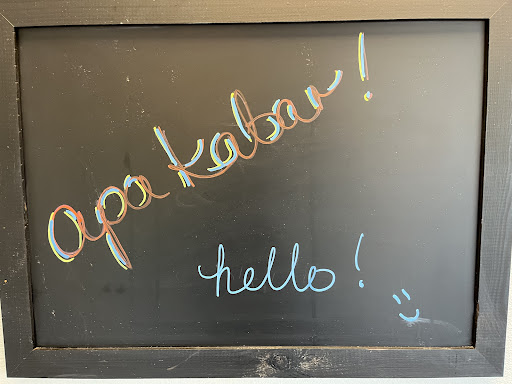 apa kabar!
hello! :)